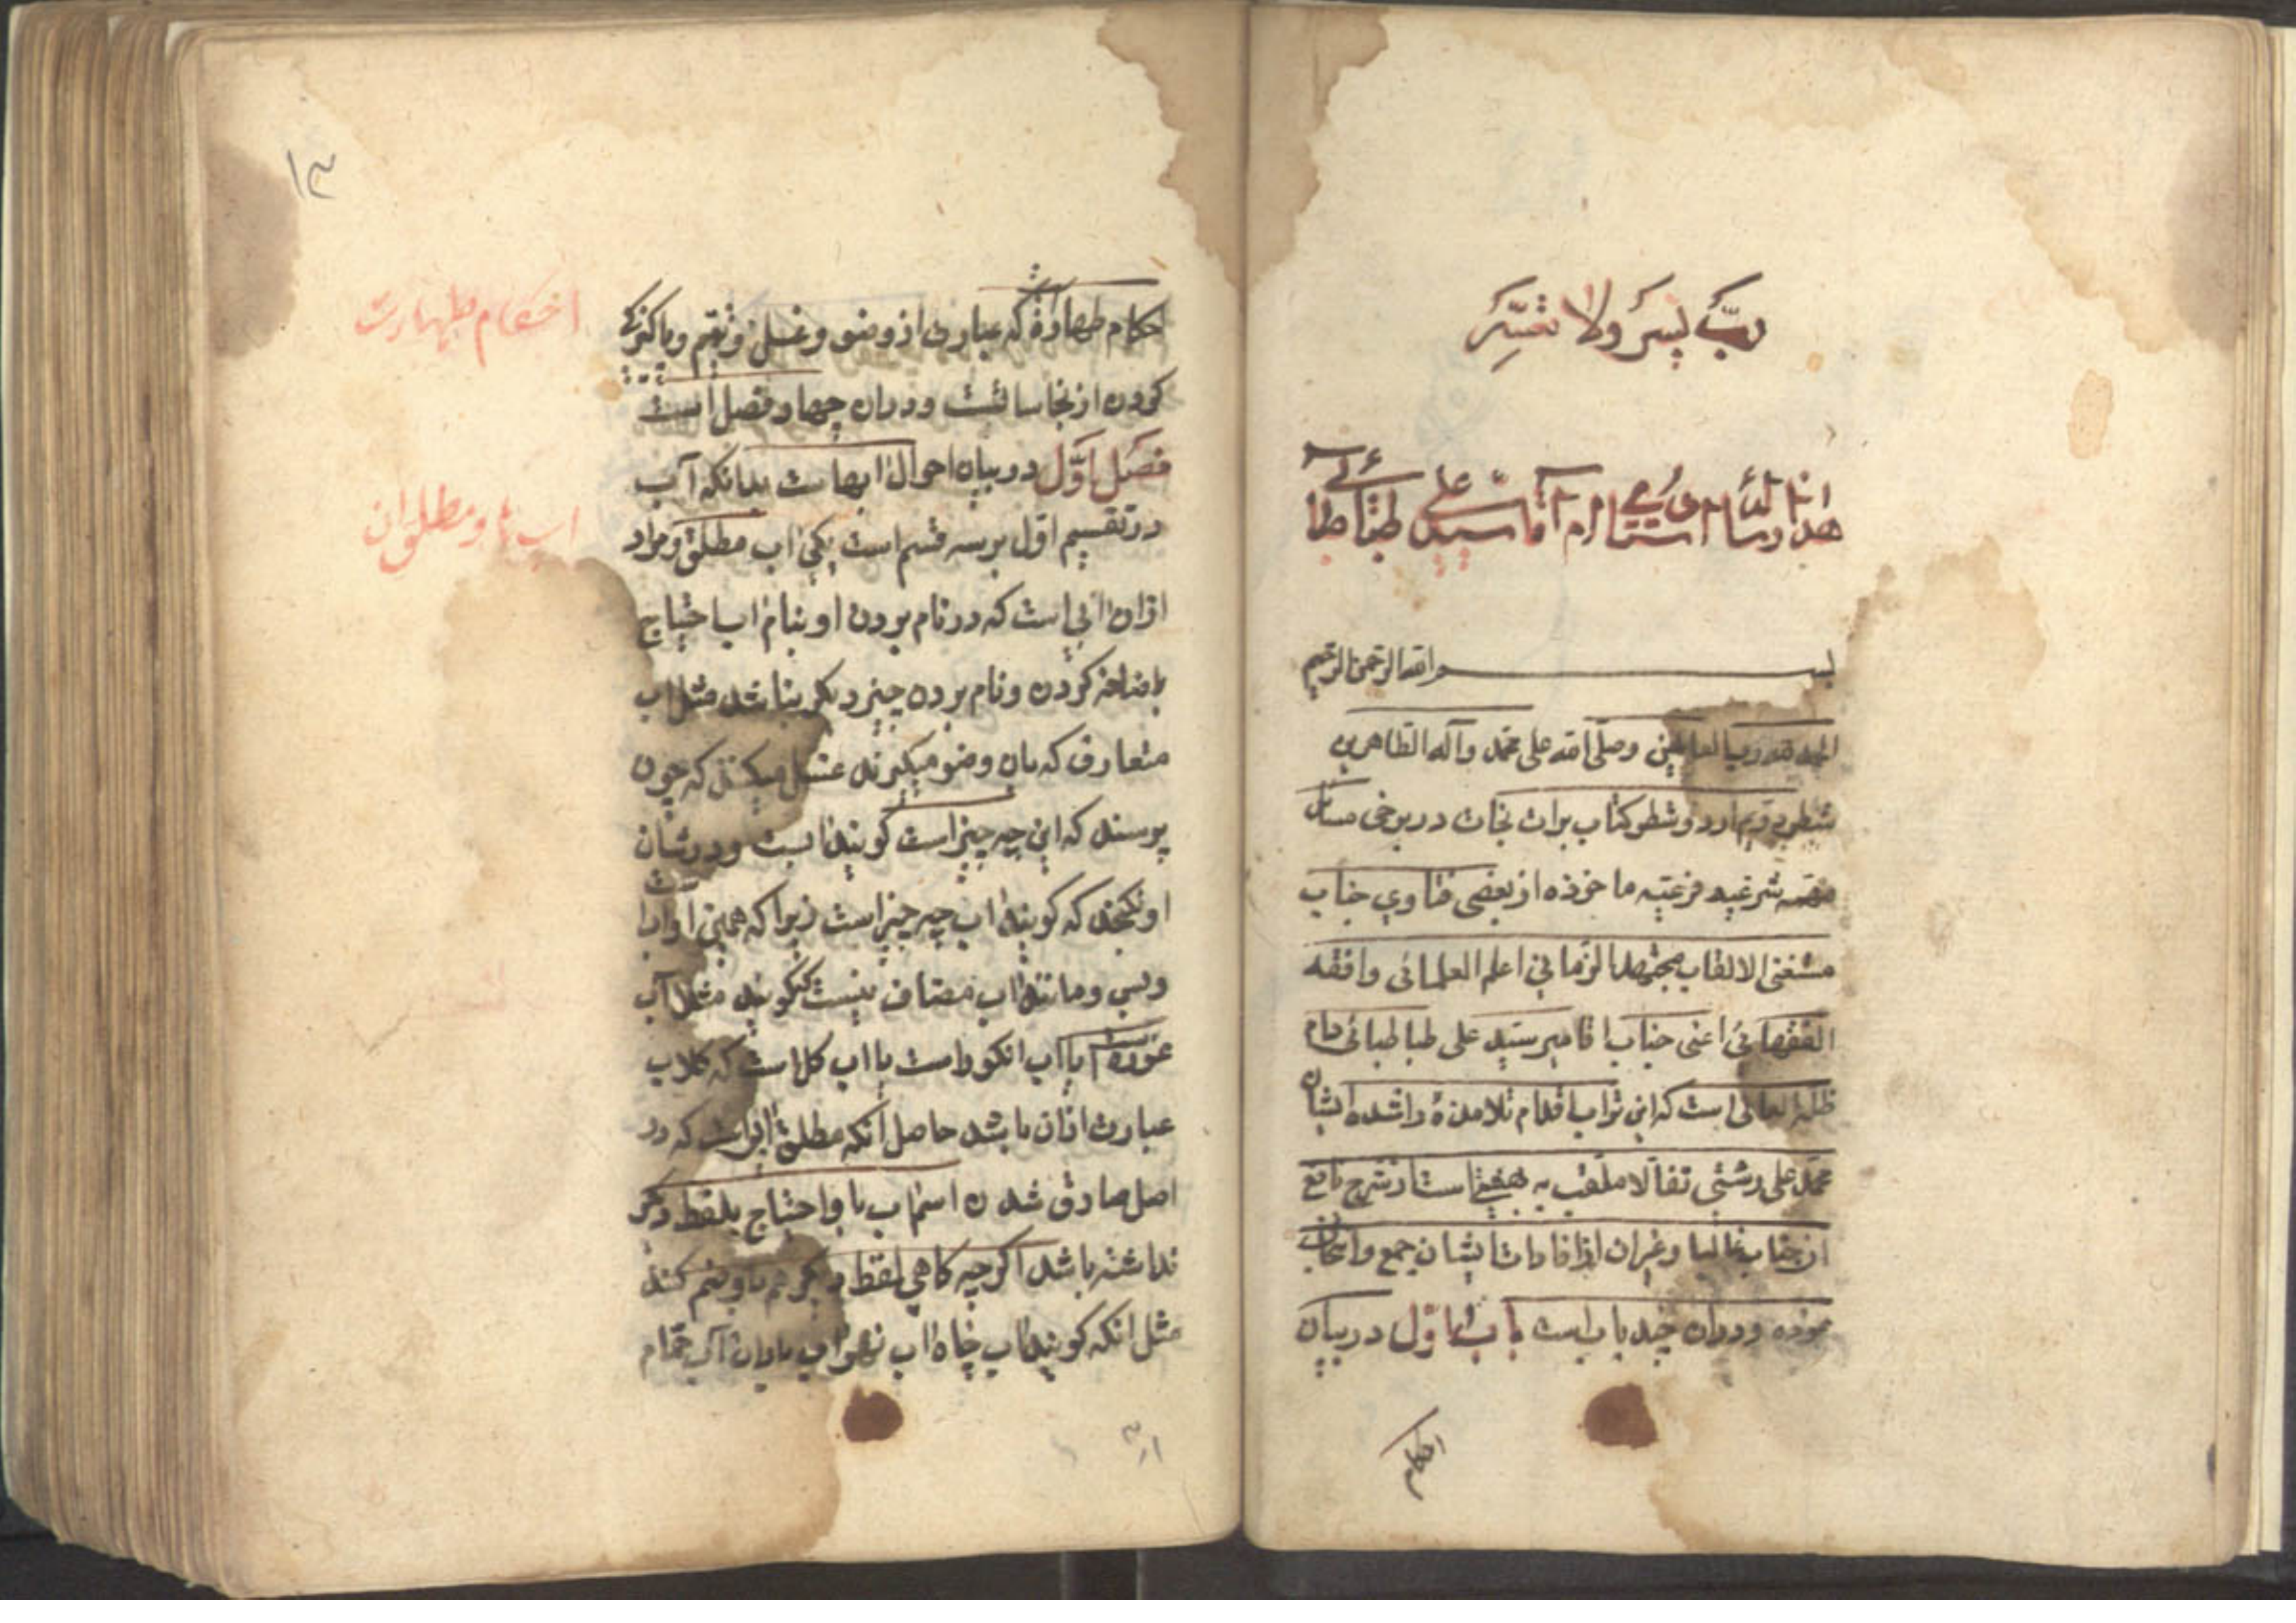 ربّ یسر ولا تعسّر
هذا رساله استاد ام آقا سید علی طباطبائی
بسم الله الرحمن الرحیم
الحمد لله رب العالمین وصلّی الله علی محمّد وآله الطاهرین
شطر دویم از دو شطر کتاب برات نجات در برخی مسائل
شرعیه فرعیّه ماخوذه از بعضی فتاوی جناب
مستغنی الالقاب مجتهد الزمانی اعلم العلمائی وافقه
الفقهائی اعنی جناب اقا میر سیّد علی طباطبائی دام
ظله العالی است که این تراب اقدام تلامذهٔ راشده ایشان
محمّد علی رشتی تفألا ملقّب به از شرح نافع
ان جناب غالبا وغیر ان از افادات ایشان جمع و
نموده ودران چند باب است باب اوّل در بیان
احکام
۱۳
احکام طهارة که عبارت از وضو وغسل وتیمّم وپاکیزکی
کردن از نجاسات است ودران چهار فصل است
فصل اوّل در بیان احوال ابهاست بدانکه آب
در تقسیم اوّل بر سه قسم است یکی اب مطلق ومراد
ازان ابی است که در نام بردن او بنام اب احتیاج
باضافه کردن ونام بردن چیز دیکر نباشد مثل اب
متعارف که بان وضو میکیرند غسل میکنند که چون
پرسند که این چه چیز است کویند ابست ودرشان
او نکنجد که کویند اب چه چیز است زیرا که همین اورا
وبس ومانند اب مضاف نیست که کویند مثلا آب
غوره است یا اب انکور است یا اب کل است که کلاب
عبارت ازان باشد حاصل انکه مطلق ابی است که در
اصل صادق شدن اسم اب باو احتیاج بلفظ دیکر
نداشته باشد اکرچه کاهی لفظ دیکر هم باو ضم کنند
مثل انکه کویند اب چاه اب نهر اب باران آب حمّام
احکام طهارت
اب ها ومطلق ان